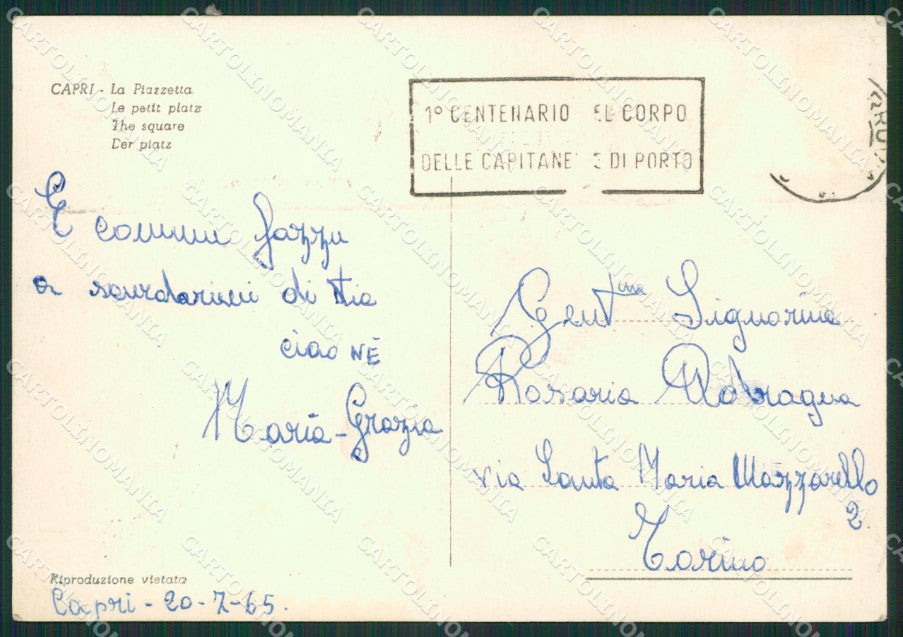 CAPRI - La Piazzetta
Le petit platz
The square
Der platz
1º CENTENARIO EL CORPO
DELLE CAPITANE E DI PORTO
E commu fazzu
a scurdarimi di tia
ciao NÈ
Maria-Grazia
Gent.ma Signorina
Rosaria
via Santa Maria Mazzarello
2
Torino
Riproduzione vietata
Capri - 20-7-65.
CARTOLINOMANIA